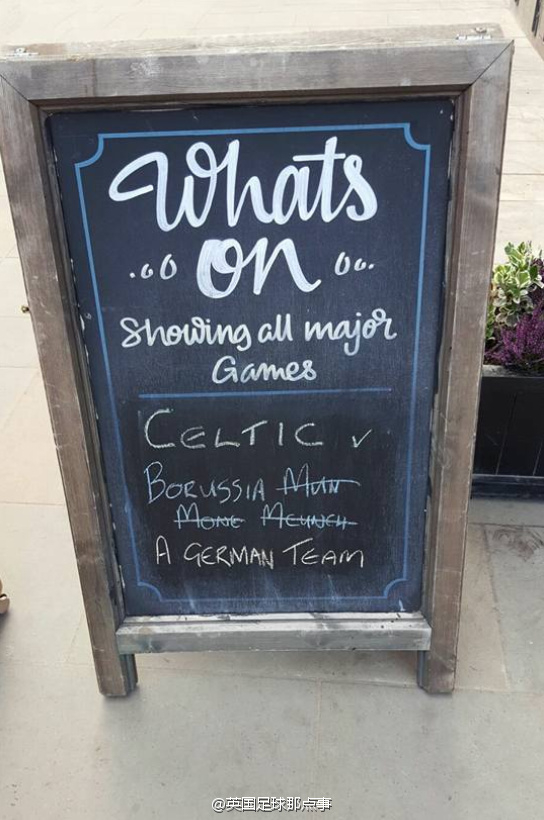 Whats
on
Showing all major
Games
CELTIC ✓
BORUSSIA MUN
MONC MEUNCH
A GERMAN TEAM
@英国足球那点事